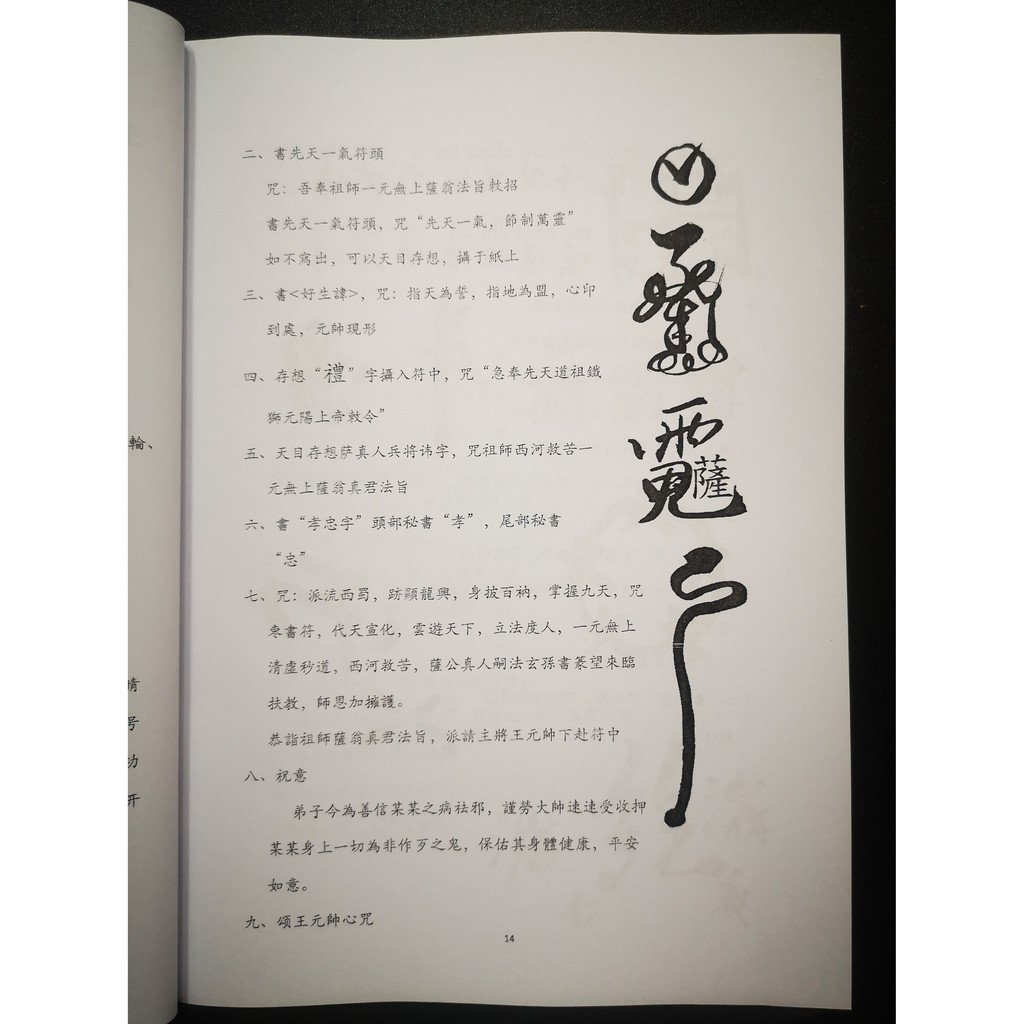 二、書先天一氣符頭
咒：吾奉祖師一元無上薩翁法旨敕招
書先天一氣符頭，咒“先天一氣，節制萬靈”
如不寫出，可以天目存想，攝于紙上
三、書<好生諱>，咒：指天為誓，指地為盟，心印
到處，元帥現形
四、存想“禮”字攝入符中，咒“急奉先天道祖鐵
獅元陽上帝敕令”
五、天目存想萨真人兵將讳字，咒祖師西河救苦一
元無上薩翁真君法旨
六、書“孝忠字”頭部秘書“孝”，尾部秘書
“忠”
七、咒：派流西蜀，跡顯龍興，身披百衲，掌握九天，咒
枣書符，代天宣化，雲遊天下，立法度人，一元無上
清虛秒道，西河救苦，薩公真人嗣法玄孫書篆望來臨
扶教，師恩加擁護。
恭詣祖師薩翁真君法旨，派請主將王元帥下赴符中
八、祝意
弟子今為善信某某之病祛邪，謹勞大帥速速受收押
某某身上一切為非作歹之鬼，保佑其身體健康，平安
如意。
九、頌王元帥心咒
14
薩
輪、
精
号
功
开